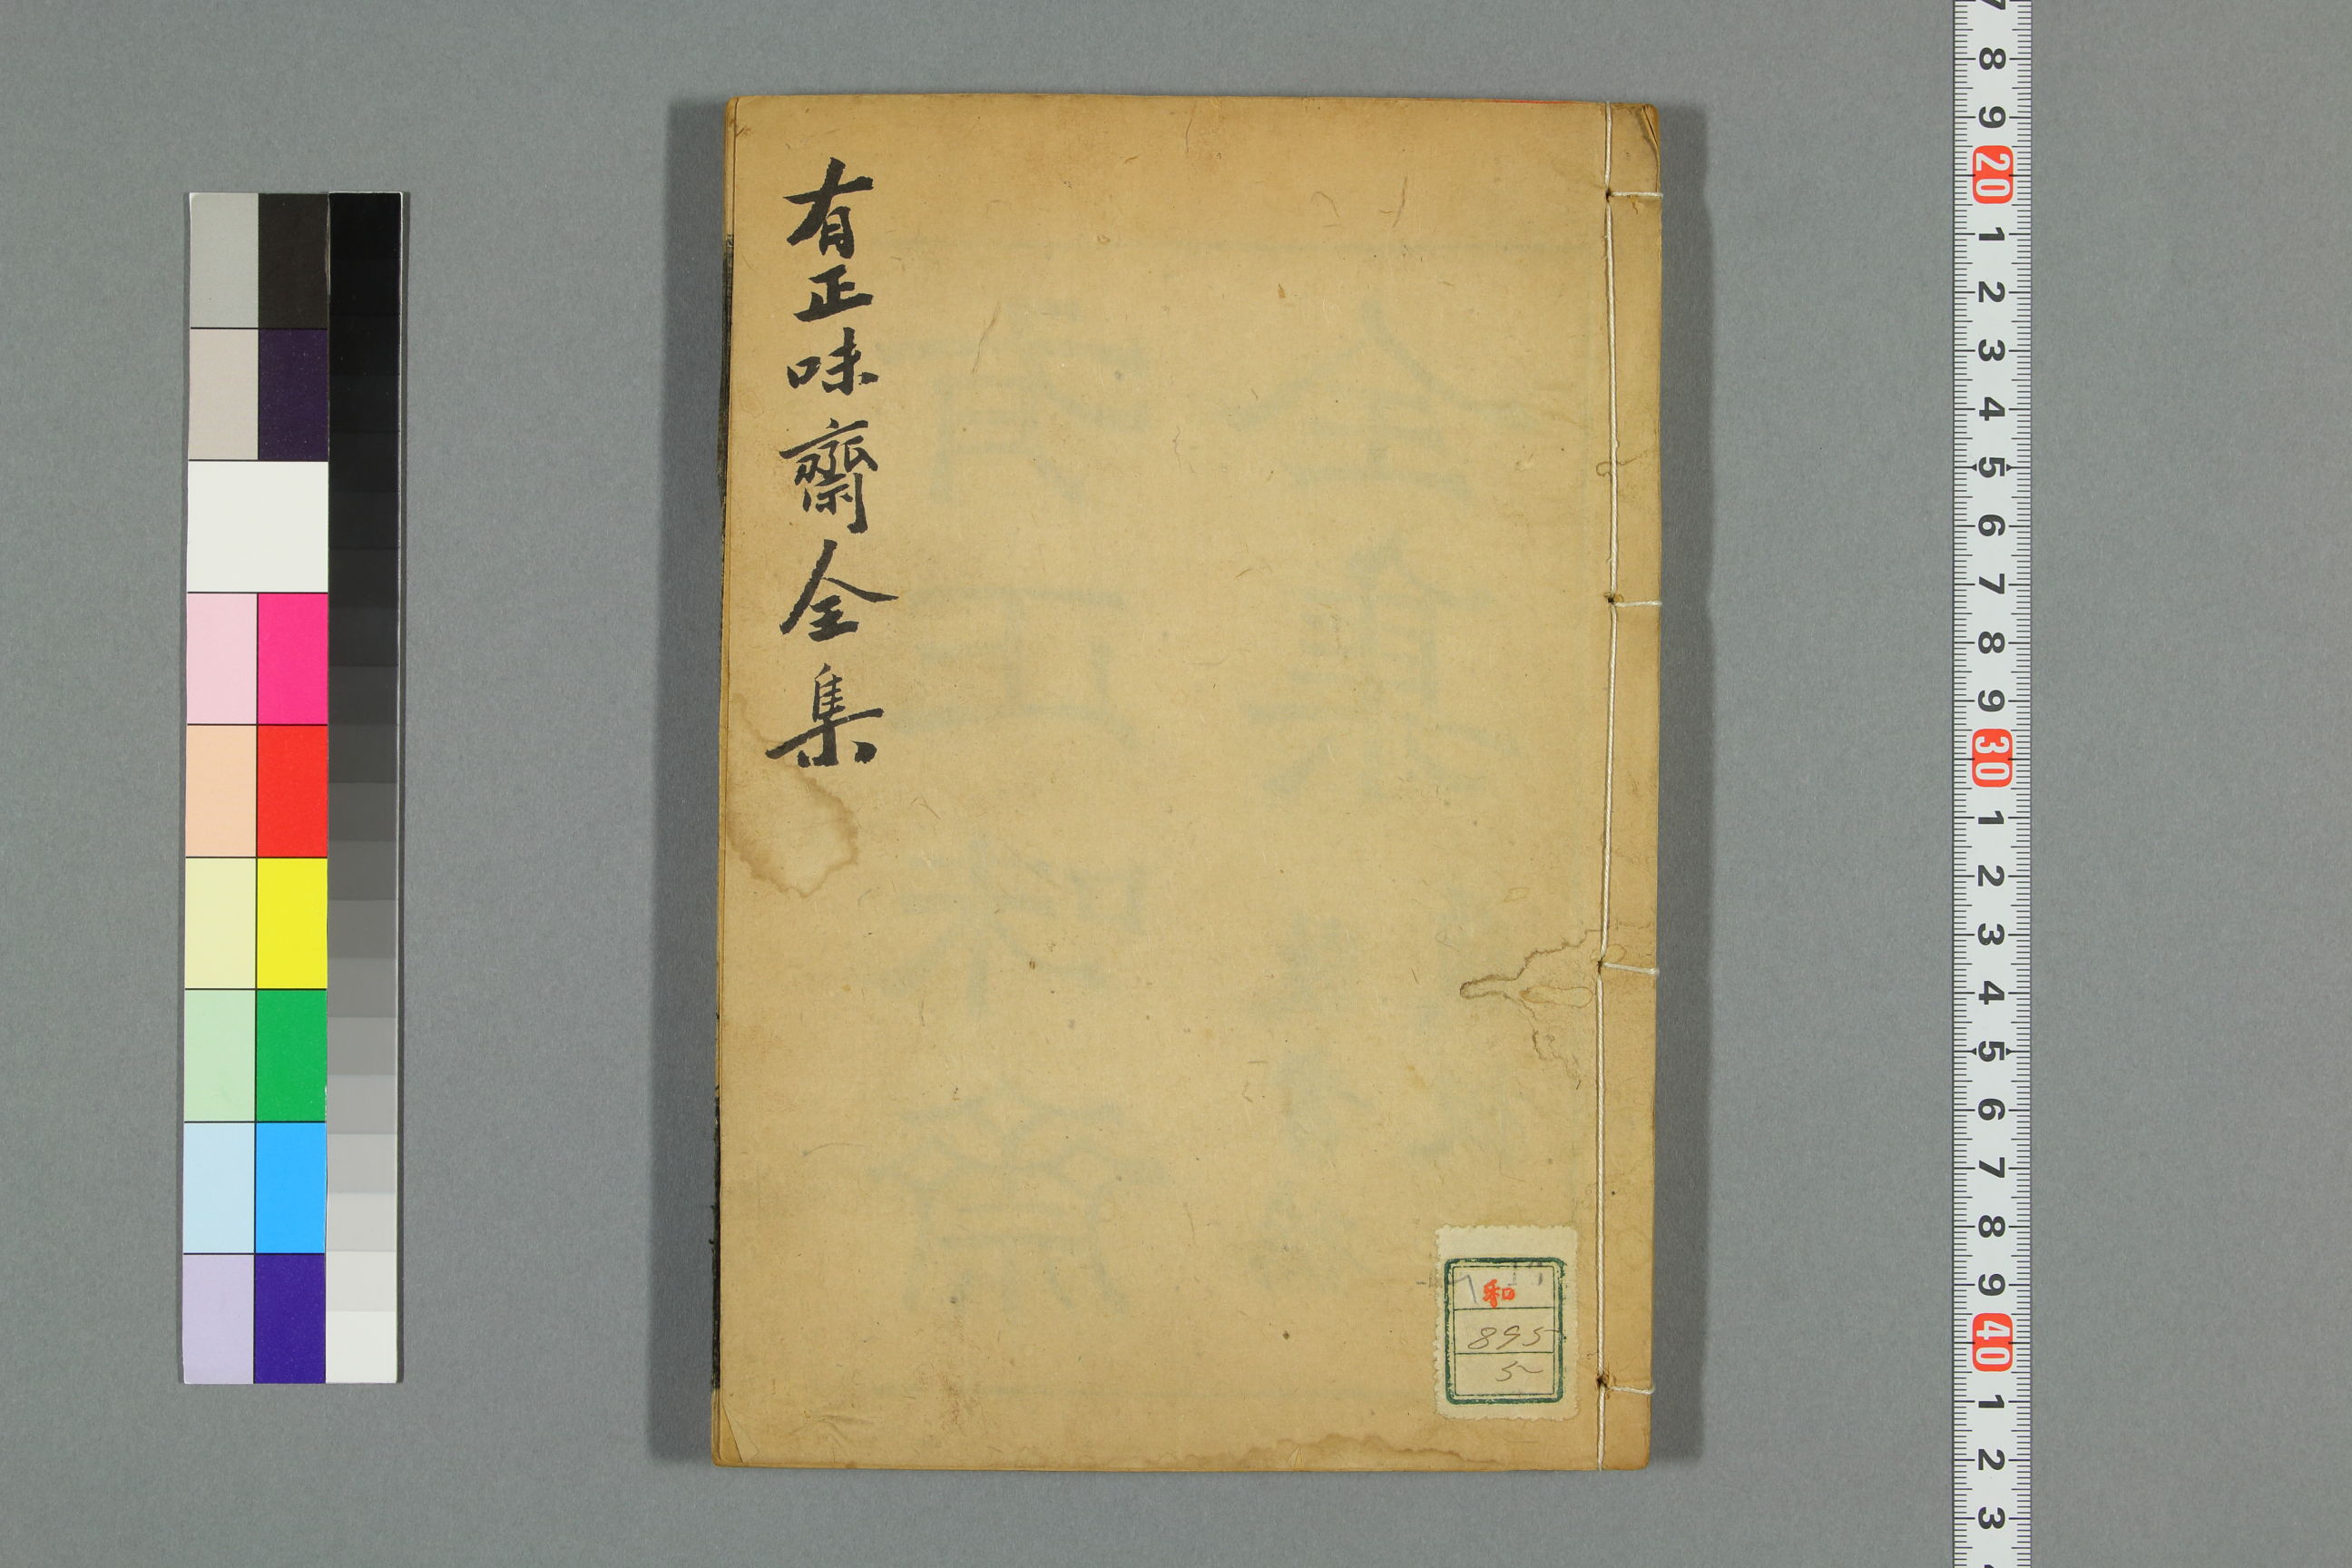 有正味齋全集
和
895
5
7
8
9
20
1
2
3
4
5
6
7
8
9
30
1
2
3
4
5
6
7
8
9
40
1
2
3